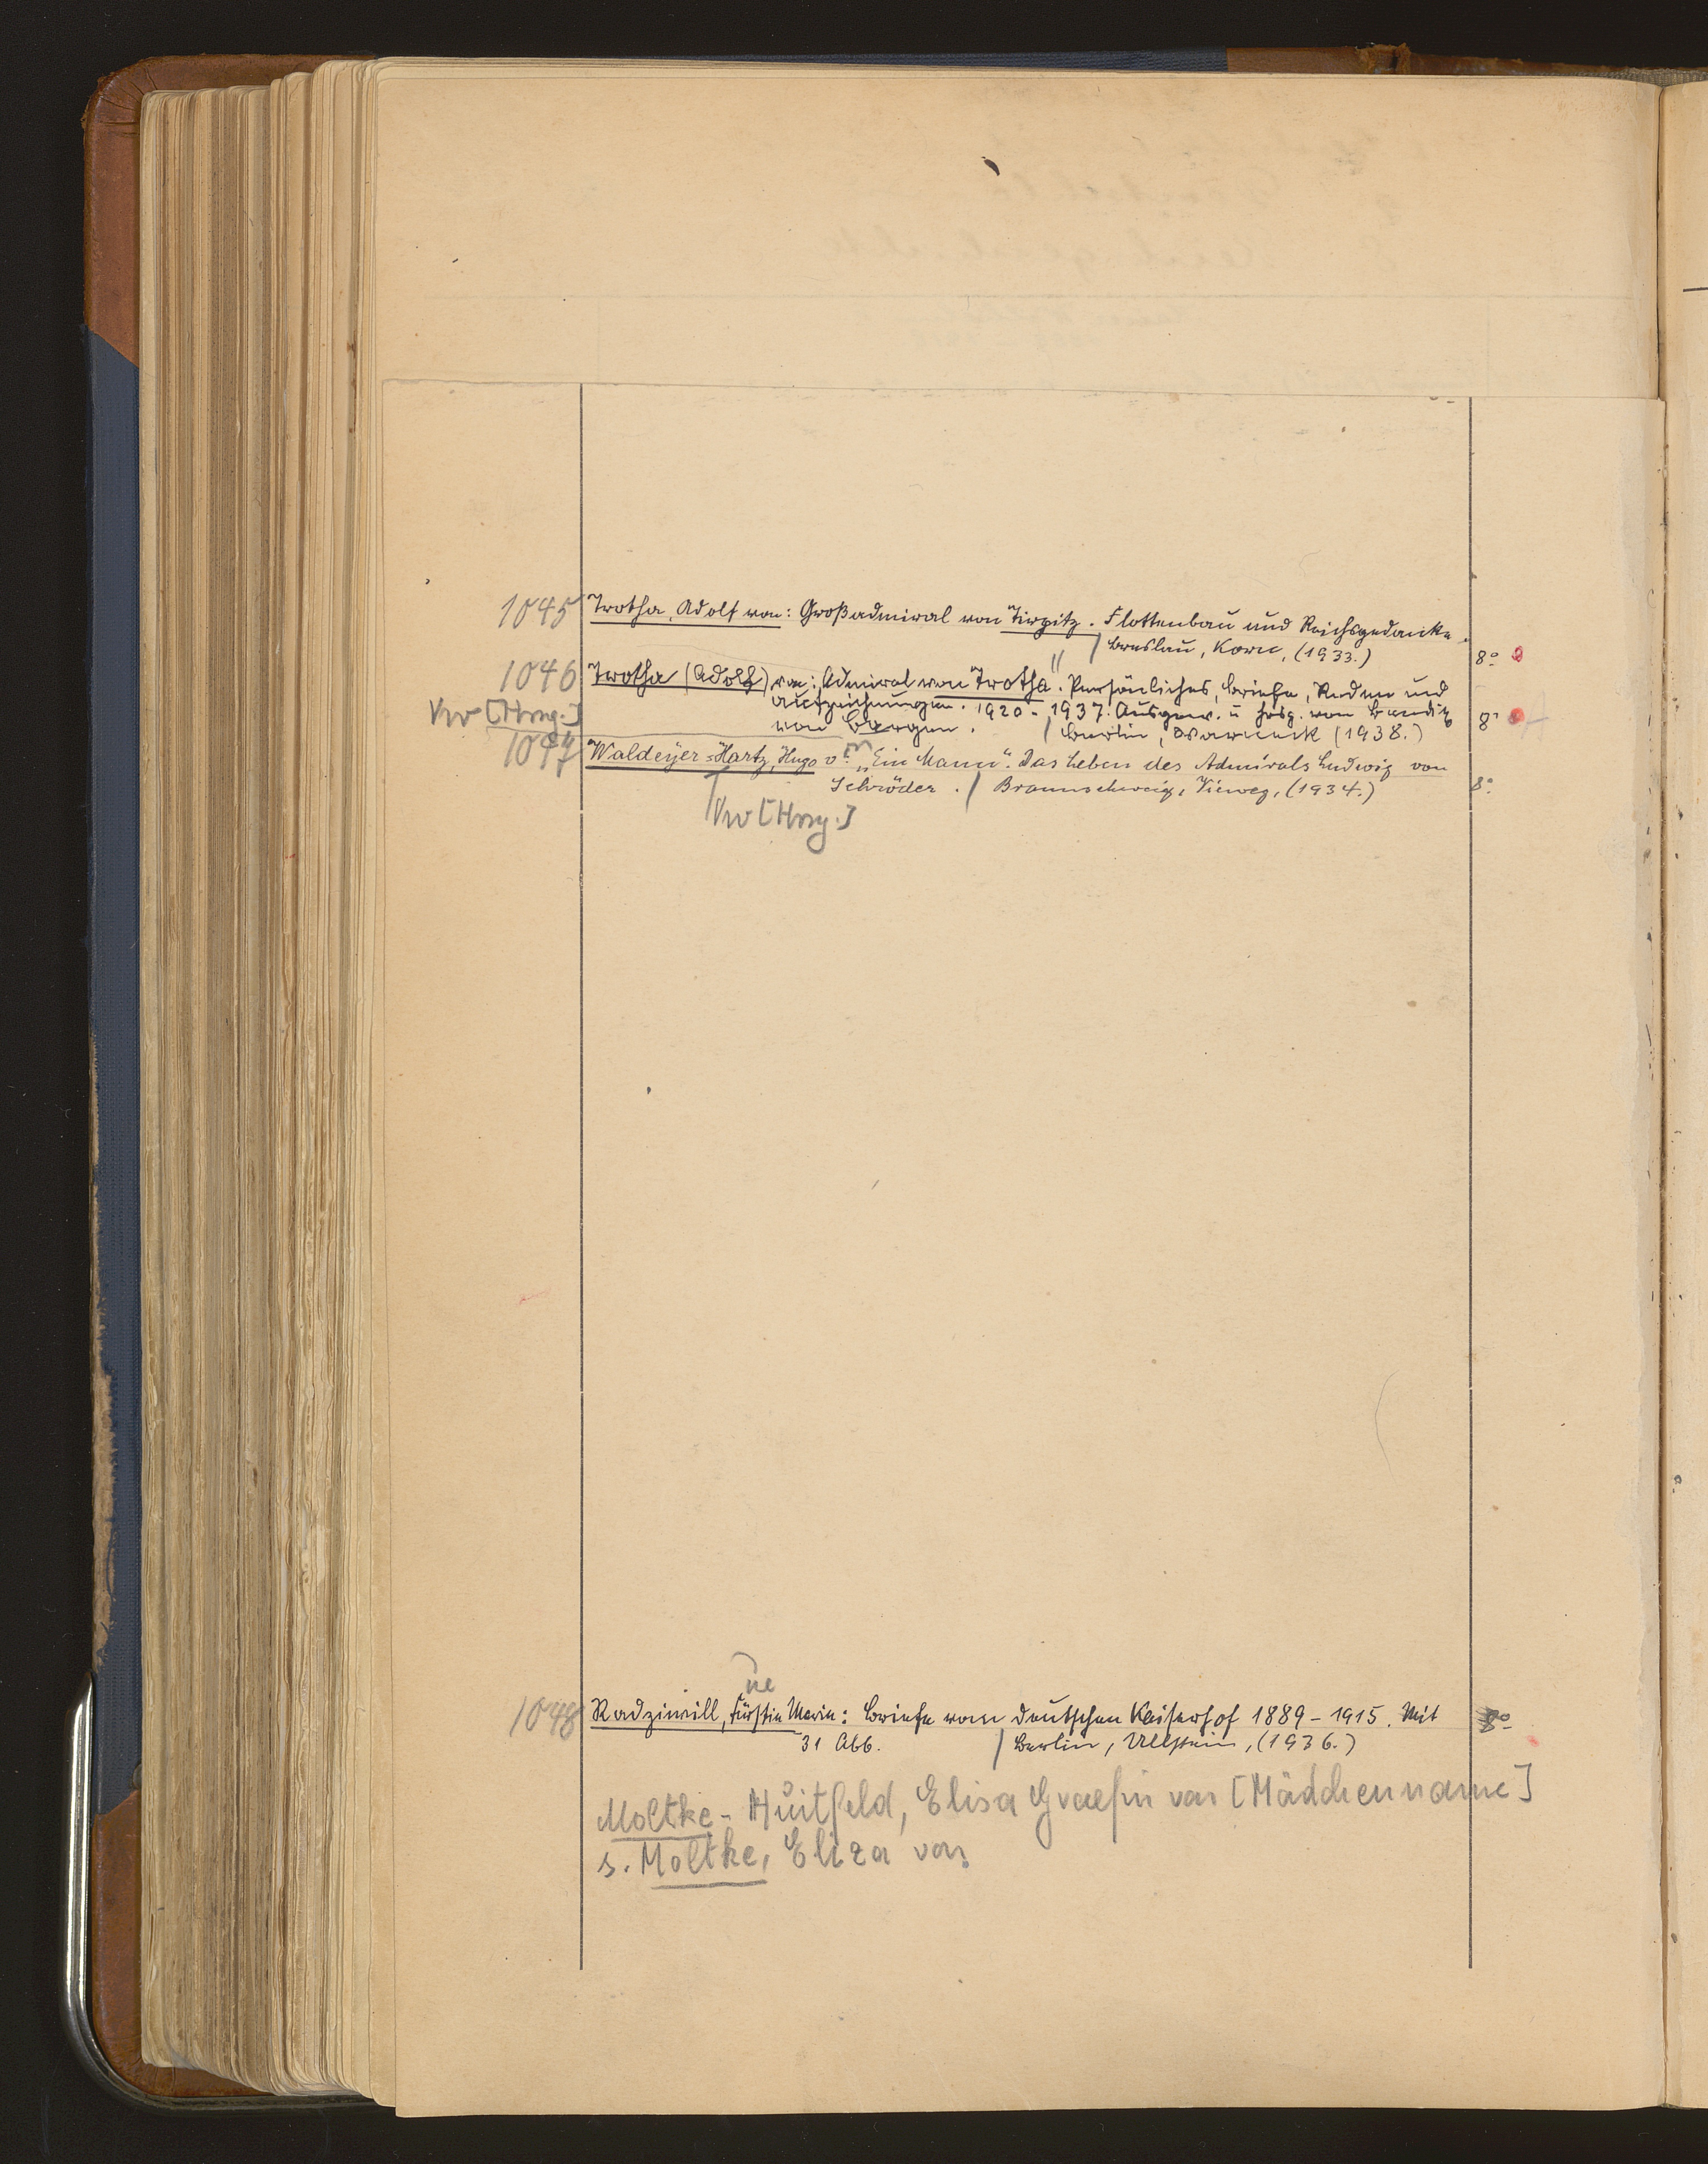 1045 Trotha, Adolf von: Großadmiral von Tirpitz. Flottenbau und Reichsgedanke.
/ Breslau, Korn, (1933.) 8°
1046 Trotha (Adolf) von: Admiral von Trotha. Persönliches, Briefe, Reden und
Aufzeichnungen. 1920-1937. Ausgew. u hrsg. von Bendix
von Bargen. / Berlin, Warneck (1938.) 8°
Vw [Hrsg.]
1047 Waldeyer=Hartz, Hugo v: „Ein Mann“. Das Leben des Admirals Ludwig von
Schröder. / Braunschweig, Vieweg, (1934.) 8°
Vw [Hrsg.]
ne
1048 Radziwill, Fürstin Marie: Briefe vom deutschen Kaiserhof 1889-1915. Mit 8°
31 Abb. / Berlin, Ullstein, (1936.)
Moltke-Huitfeld, Elisa Graefin von [Mädchenname]
s. Moltke, Eliza von